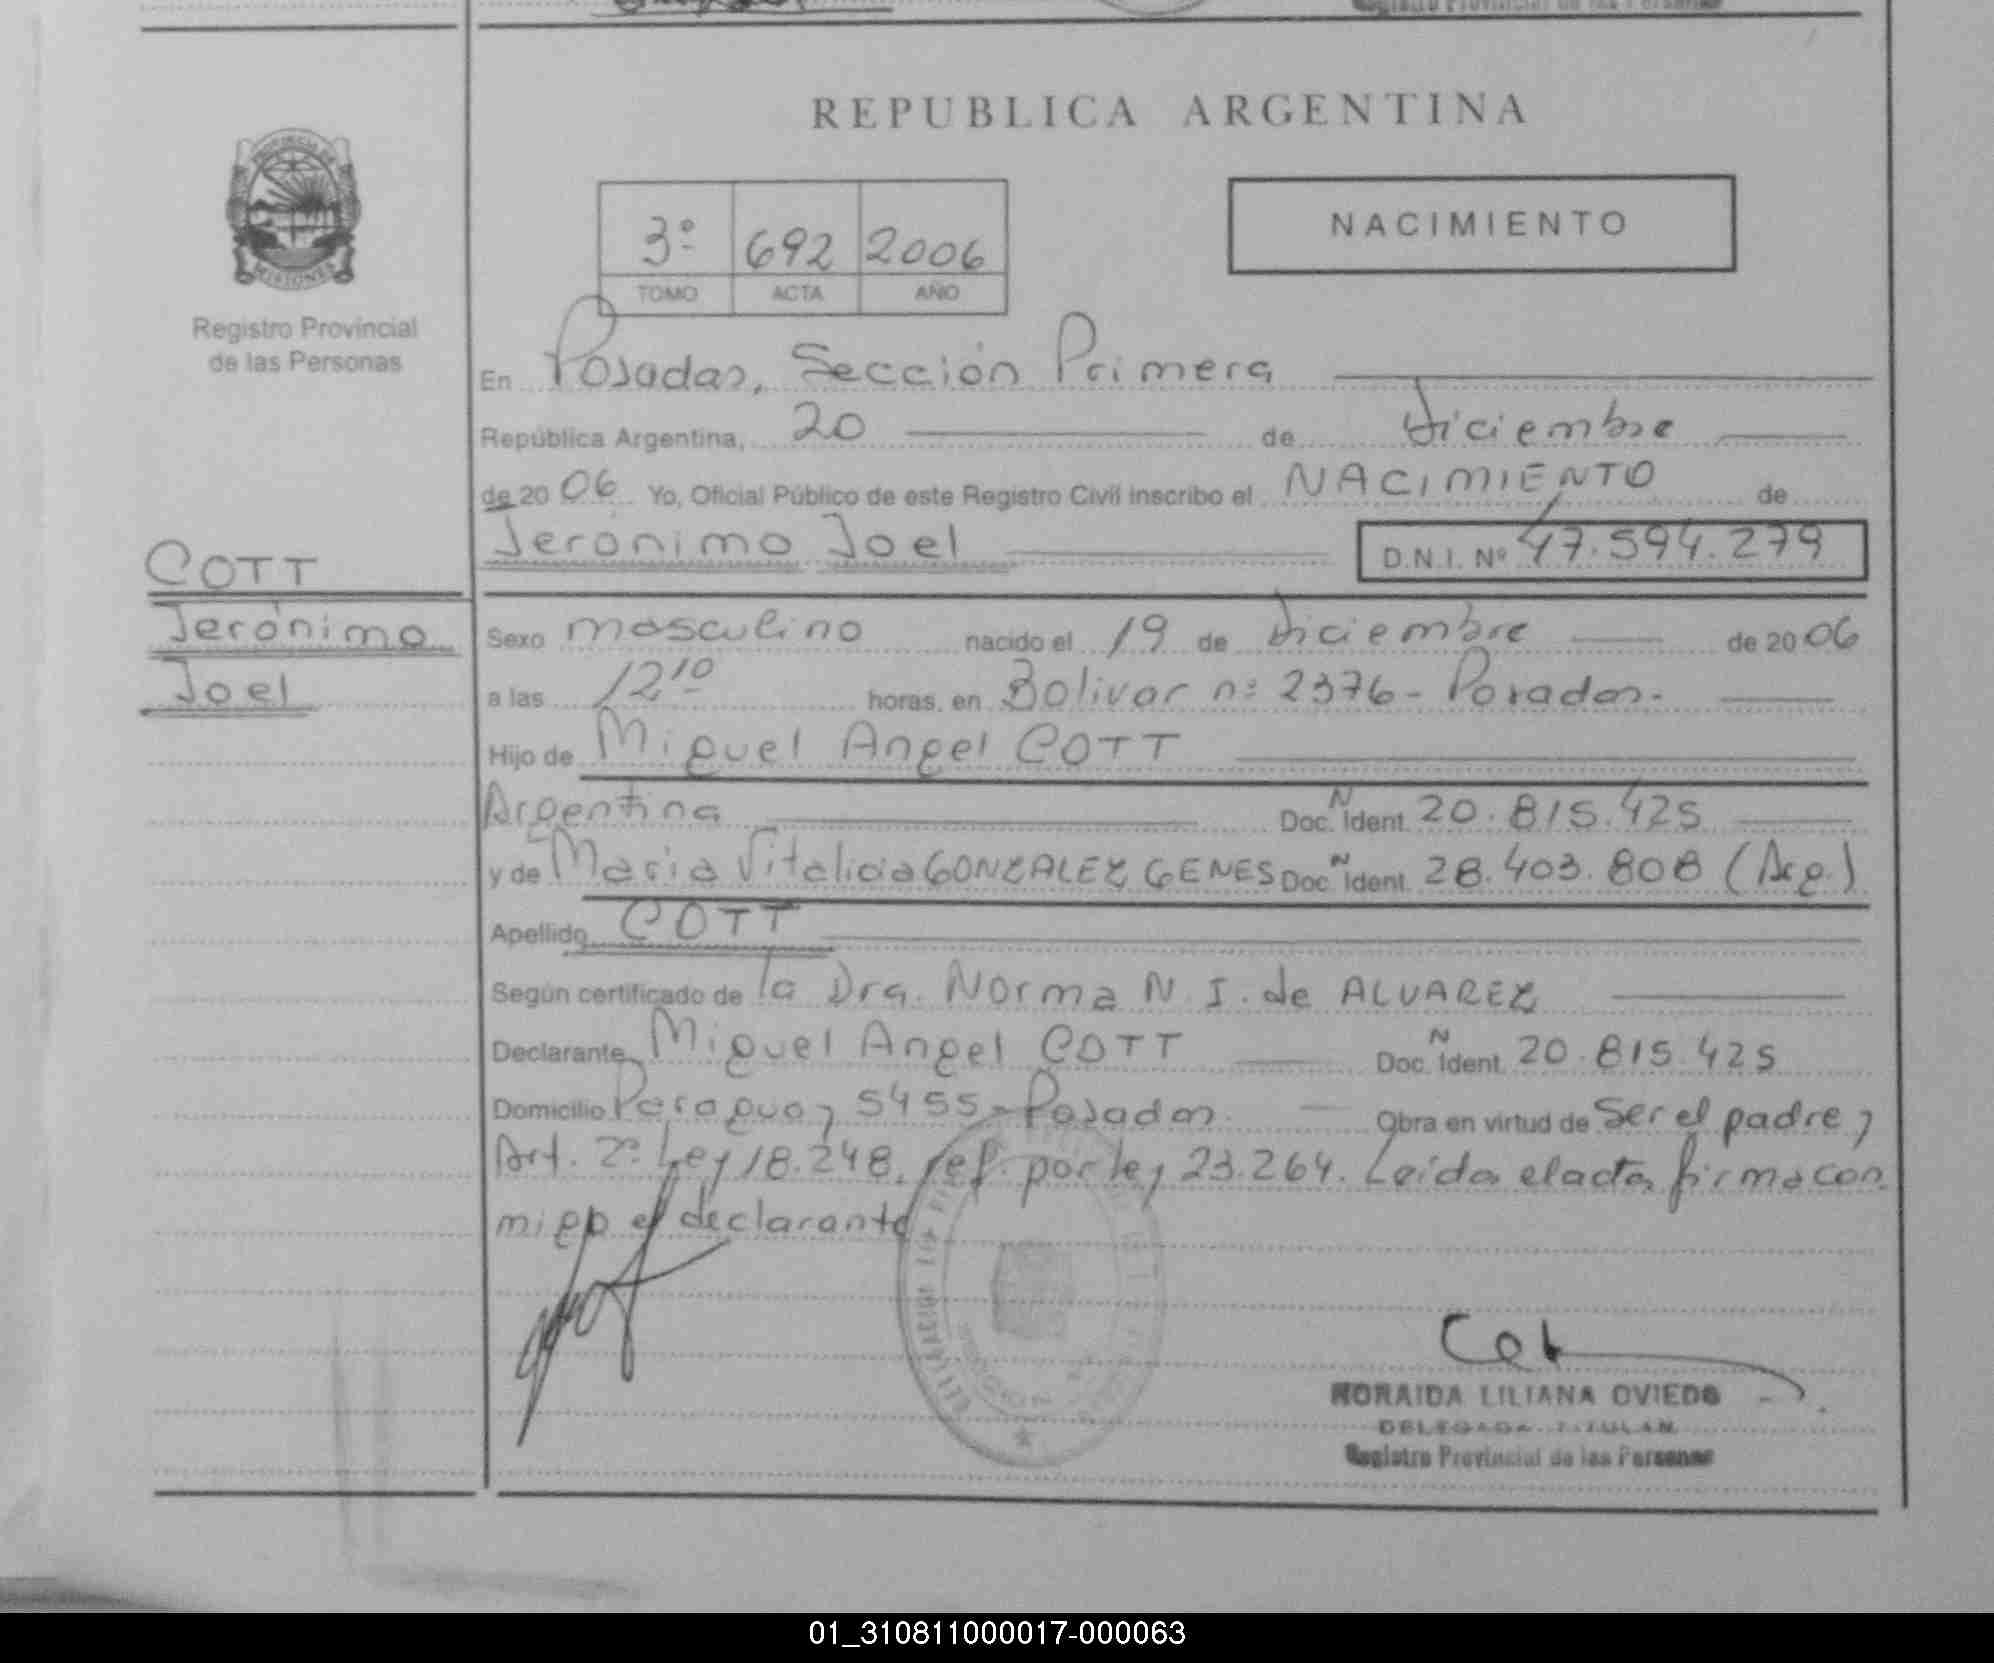 REPUBLICA ARGENTINA
PROVINCIA DE
MISIONES
Registro Provincial
de las Personas
3º 692 2006
TOMO ACTA AÑO
NACIMIENTO
En Posadas, Sección Primera
República Argentina, 20 de diciembre
de 20 06 Yo, Oficial Público de este Registro Civil inscribo el NACIMIENTO de
Jerónimo Joel D.N.I. Nº 47.594.279
COTT
Jerónimo
Joel
Sexo masculino nacido el 19 de diciembre de 20 06
a las 12¹⁰ horas, en Bolivar nº 2376 - Posadas.
Hijo de Miguel Angel COTT
Argentina Doc. N Ident. 20.815.425
y de Maria Vitalicia GONZALEZ GENES Doc. N Ident. 28.403.808 (Arg.)
Apellido COTT
Según certificado de la Dra. Norma N. I. de ALVAREZ
Declarante Miguel Angel COTT Doc. N Ident. 20.815.425
Domicilio Paraguay 5455 - Posadas. Obra en virtud de Ser el padre y
Art. 2º Ley 18.248, ref. por ley 23.264. Leída el acta, firma con
migo el declarante
NORAIDA LILIANA OVIEDO
DELEGADA TITULAR
Registro Provincial de las Personas
01_310811000017-000063